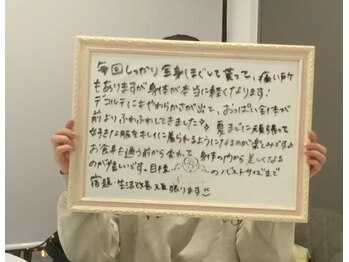 毎回しっかり全身しまぐして貰って、痛い所
もありますが身体が本当に軽くなります!
デコルテにもやわらかさが出て、おっぱい全体が
前よりふわふわしてきました 夏までに頑張って
好きな服をキレイに着られるようになるのが楽しみです
お食事も通う前から変わって 身体の内から美しくなる
のが嬉しいです。目標 のバストサイズまで
宿題・生活改善 頑張ります